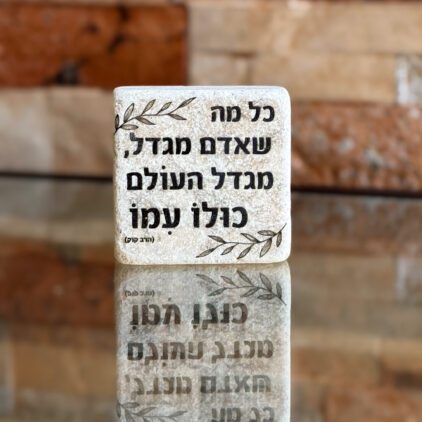 כל מה
שאדם מגדל,
מגדל העולם
כולו עִמוֹ
(הרב קוק)